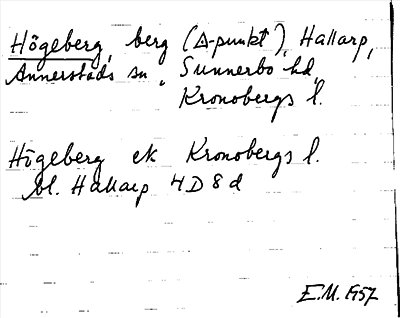 Högeberg, berg (△-punkt), Hallarp,
Annerstads sn, Sunnerbo hd,
Kronobergs l.
Högeberg ek Kronobergs l.
bl. Hallarp 4D8d
E.M. 1957